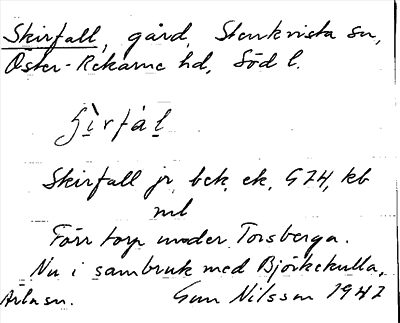 Skirfall, gård, Stenkvista sn,
Öster-Rekarne hd, Söd l.
Skirfall jr, bck, ek, G74, kb
ml
Förr torp under Torsberga.
Nu i sambruk med Björkekulla,
Ärla sn. Gun Nilsson 1947